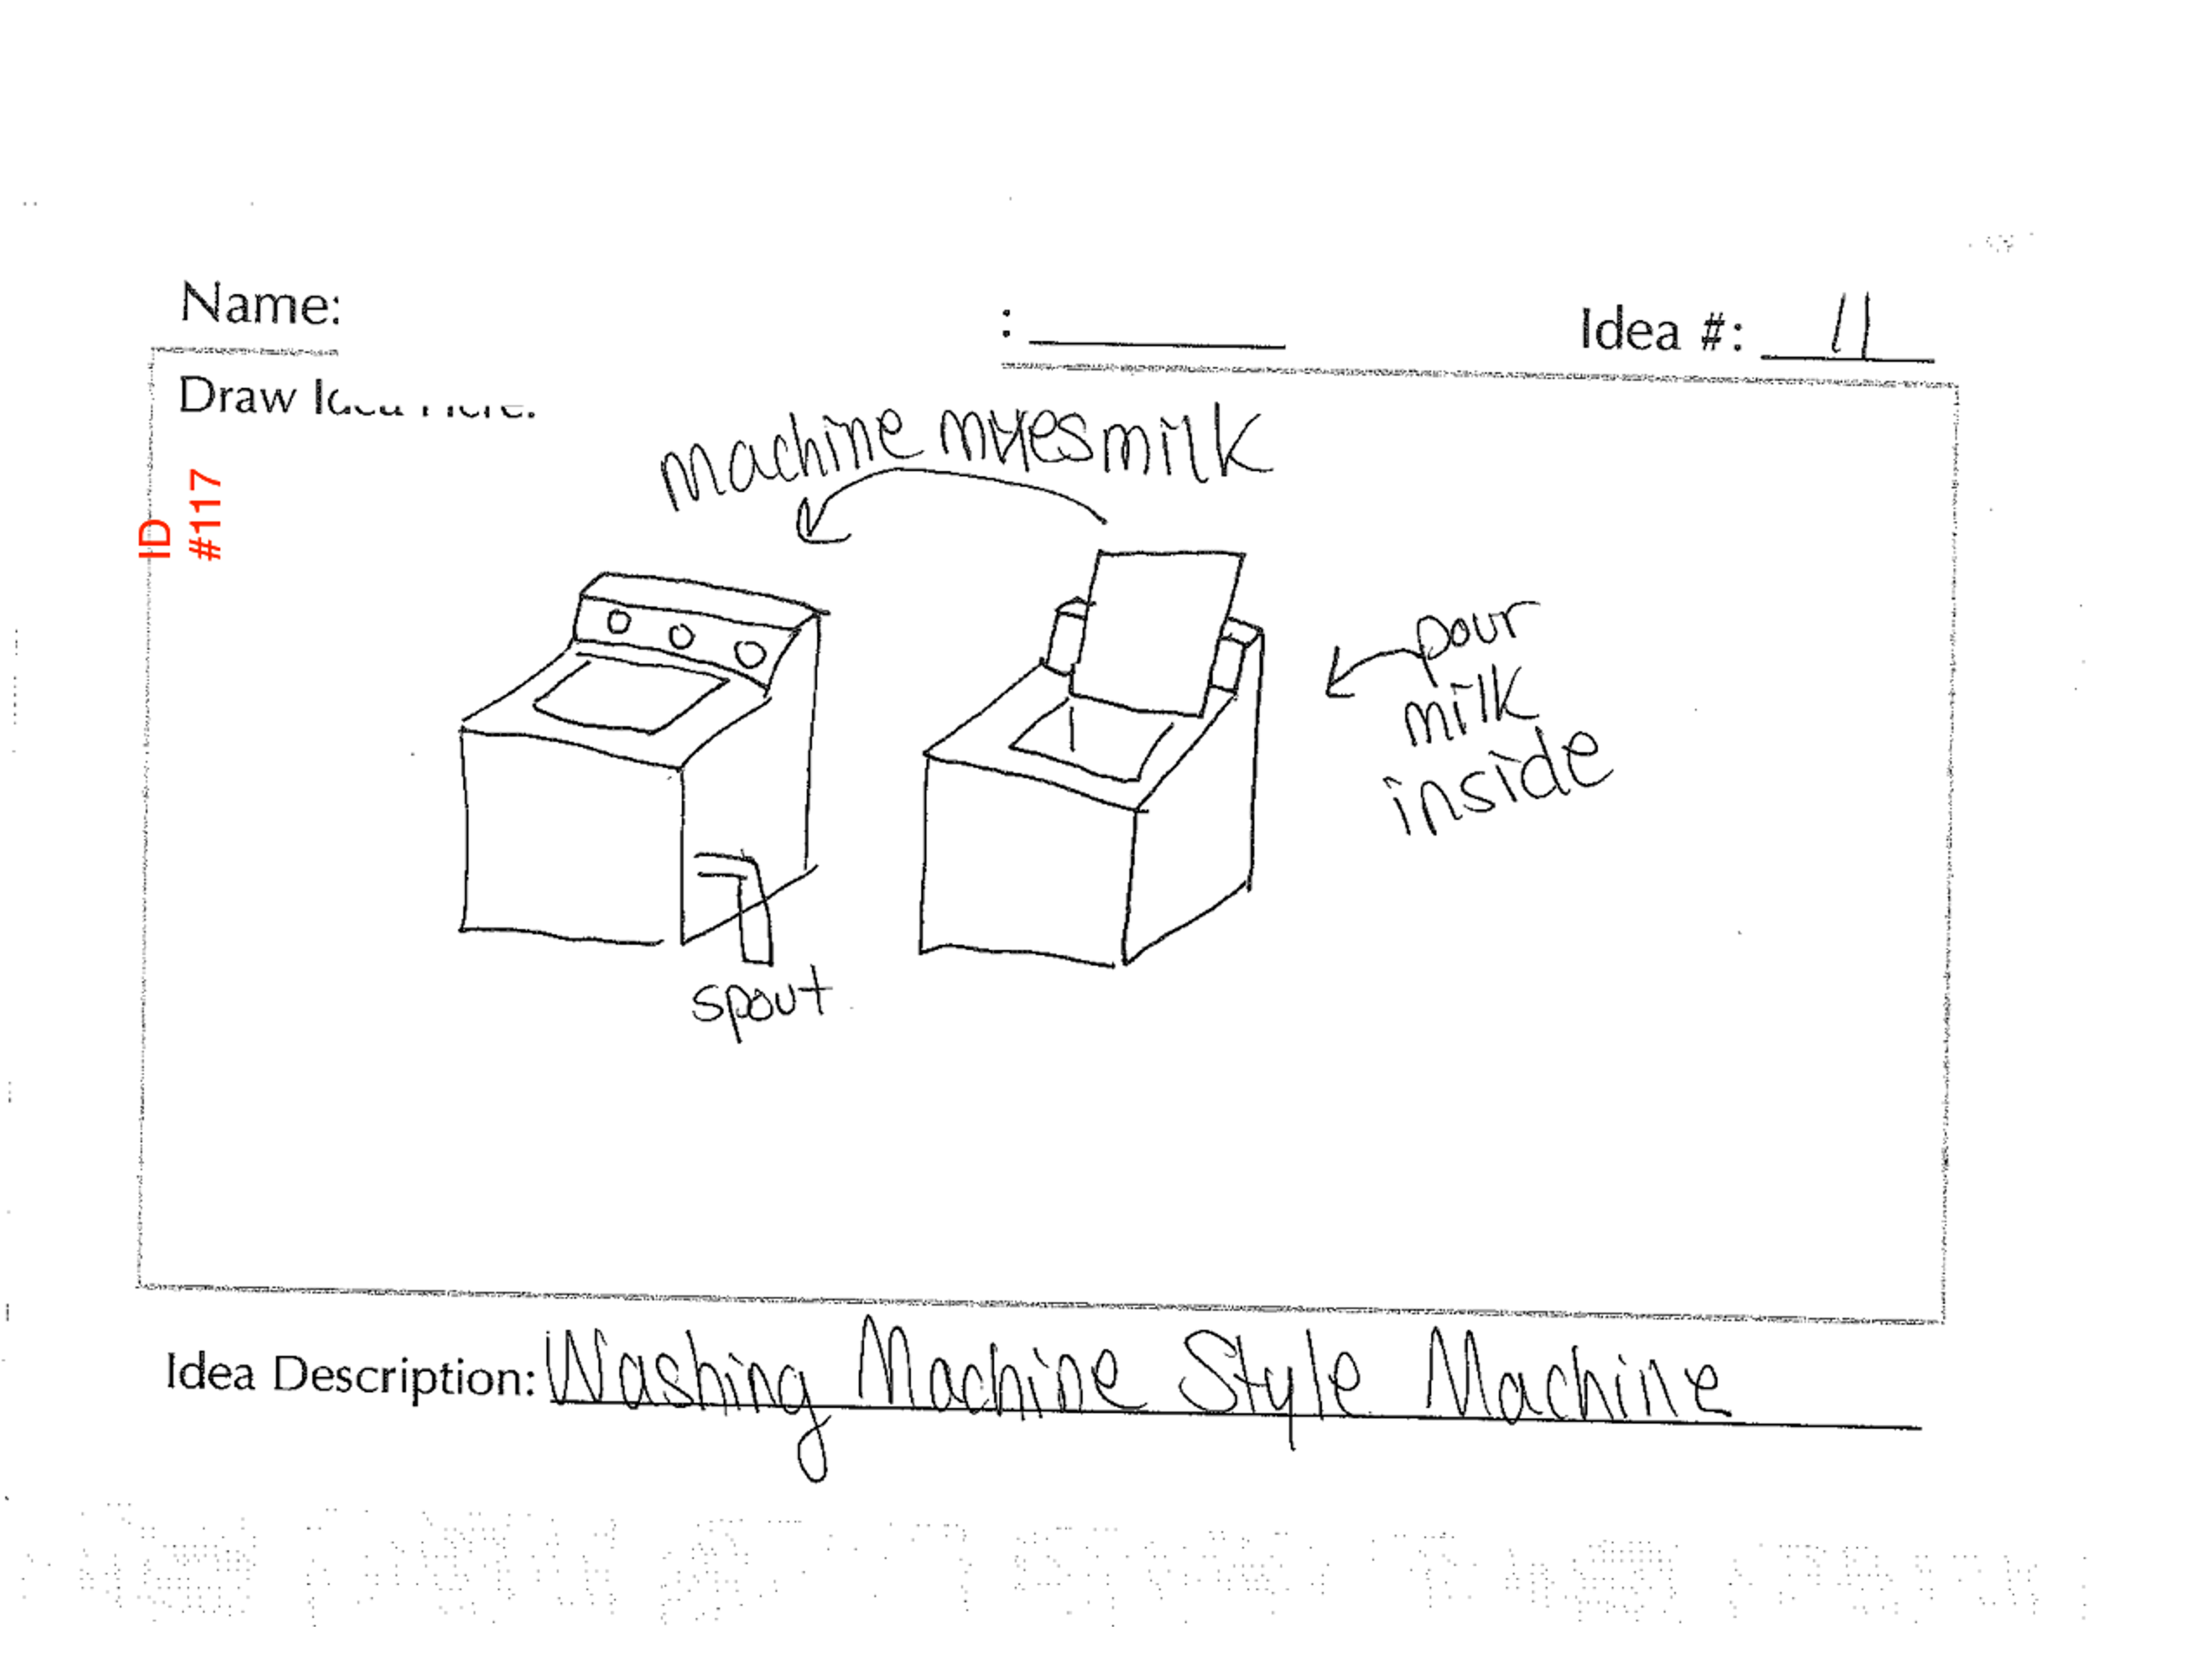 Name:
:
Idea #: 11
Draw
ID
#117
machine mixes milk
pour
milk
inside
spout
Idea Description: Washing Machine Style Machine